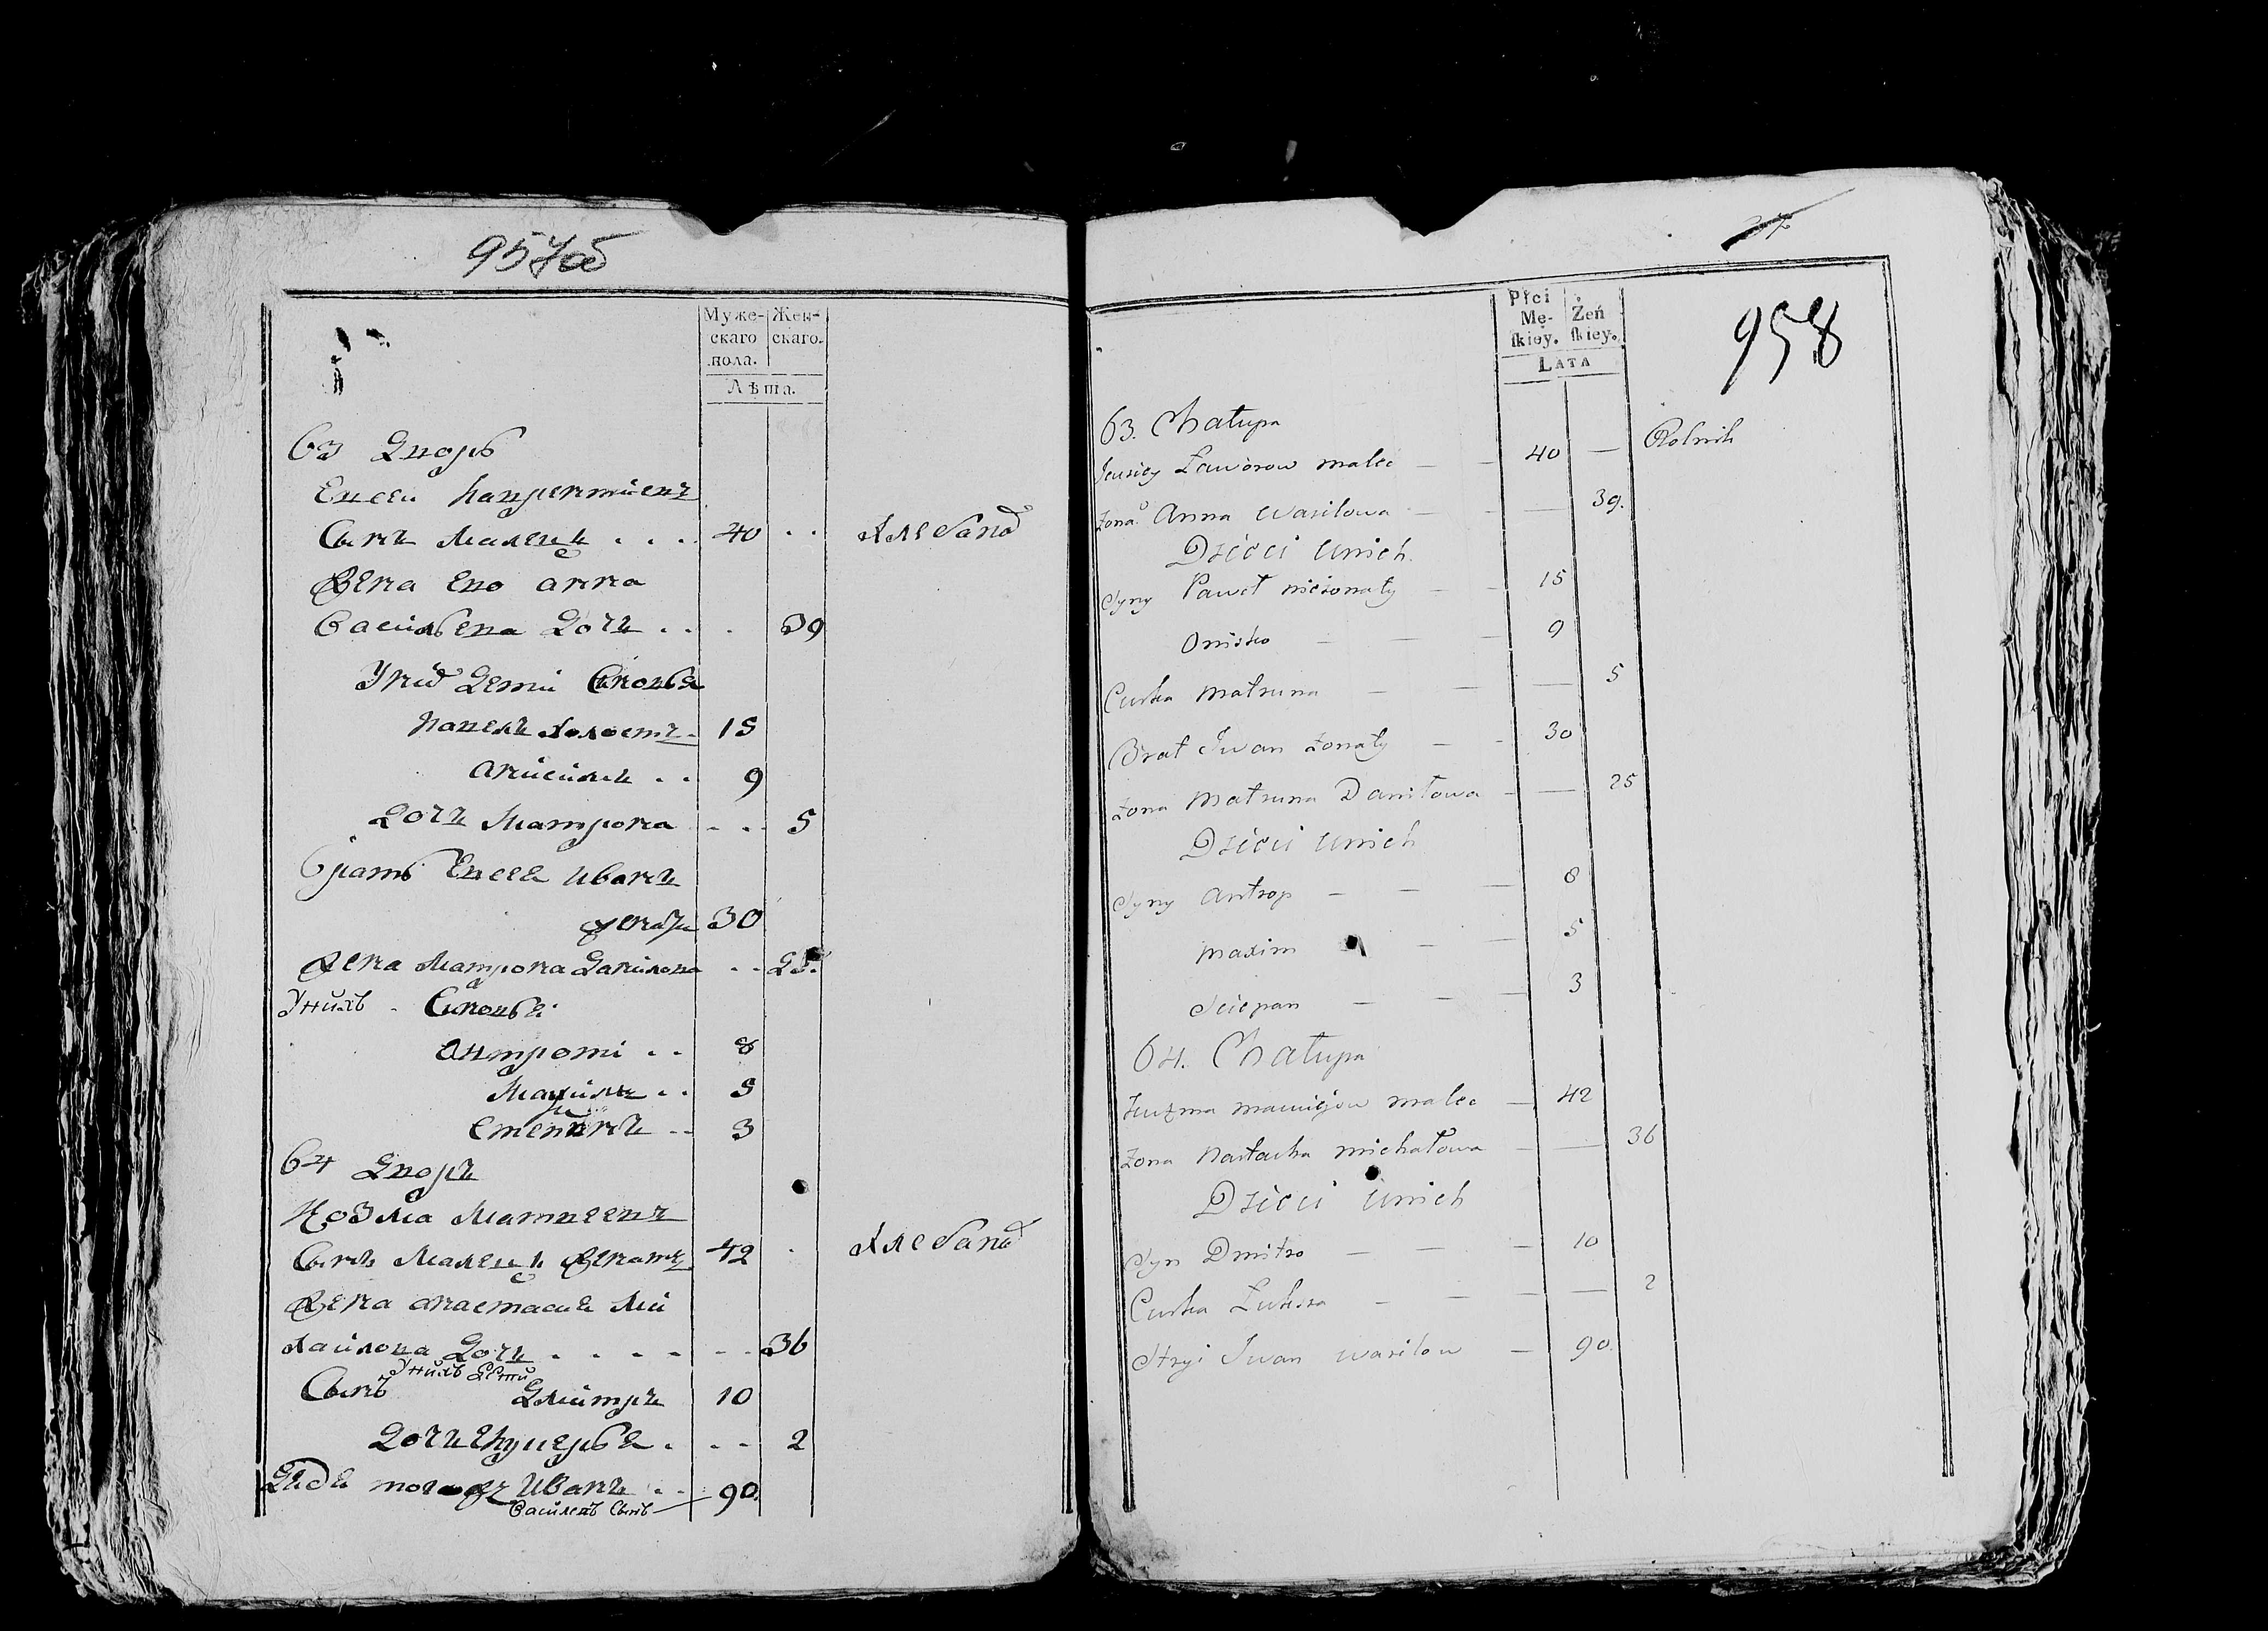 957об
Муже-
скаго
пола.
Жен-
скаго.
Лѣта.
63 Дворъ
Евсеи Лаврентиевъ
Сынъ Малецъ . . . 40 . . Хлебапа
Жена Ево Анна
Васильева Дочь . . . 39
Унихъ Дети Сыновья
Павелъ Холостъ . 15
Анисимъ . . 9
Дочь Матрона . . . 5
Братъ Евсея Иванъ
женатъ 30
Жена Матрона Данилова . . 25.
Унихъ . Сыновья
Антропъ . . 8
Максимъ . . 5
Степанъ . . 3
64 Дворъ
Козма Матвеевъ
Сынъ Малецъ Женатъ 42 . Хлебапа
Жена Анастасия Ми
хайлова Дочь . . . . . . 36
Унихъ Дети
Сынъ Дмитръ 10
Дочь . . . 2
Дядя тогожъ Иванъ . . 90.
Василевъ Сынъ
958
Płci
Mę-
ſkiey.
Żeń
ſkiey.
LATA
63. Chałupa
Jewsiey Ławorow malec — — 40 — Rolnik
Żona Anna Wasilowa — — — 39.
Dzieci Unich
Syny Paweł nieżonaty — — 15
Onisko — — — 9
Curka Matruna — — — 5
Brat Jwan Żonaty — — 30
Żona Matruna Daniłowa — — 25
Dzieci Unich
Syny Antrop — — — 8
Maxim — — 5
Sciepan — — — 3
64. Chałupa
Kuźma Maciejow malec — 42
Żona Nastazka Michałowa — — 36
Dzieci Unich
Syn Dmitro — — — 10
Curka — — — — 2
Stryi Jwan Wasilow — 90.